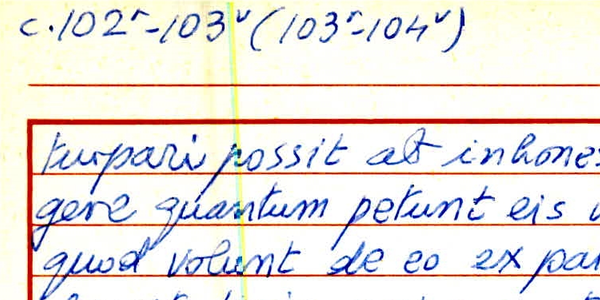 c. 102ʳ-103ᵛ (103ʳ-104ᵛ)
turpari possit ab inhones
gere quantum petunt eis
quod volunt de eo ex par